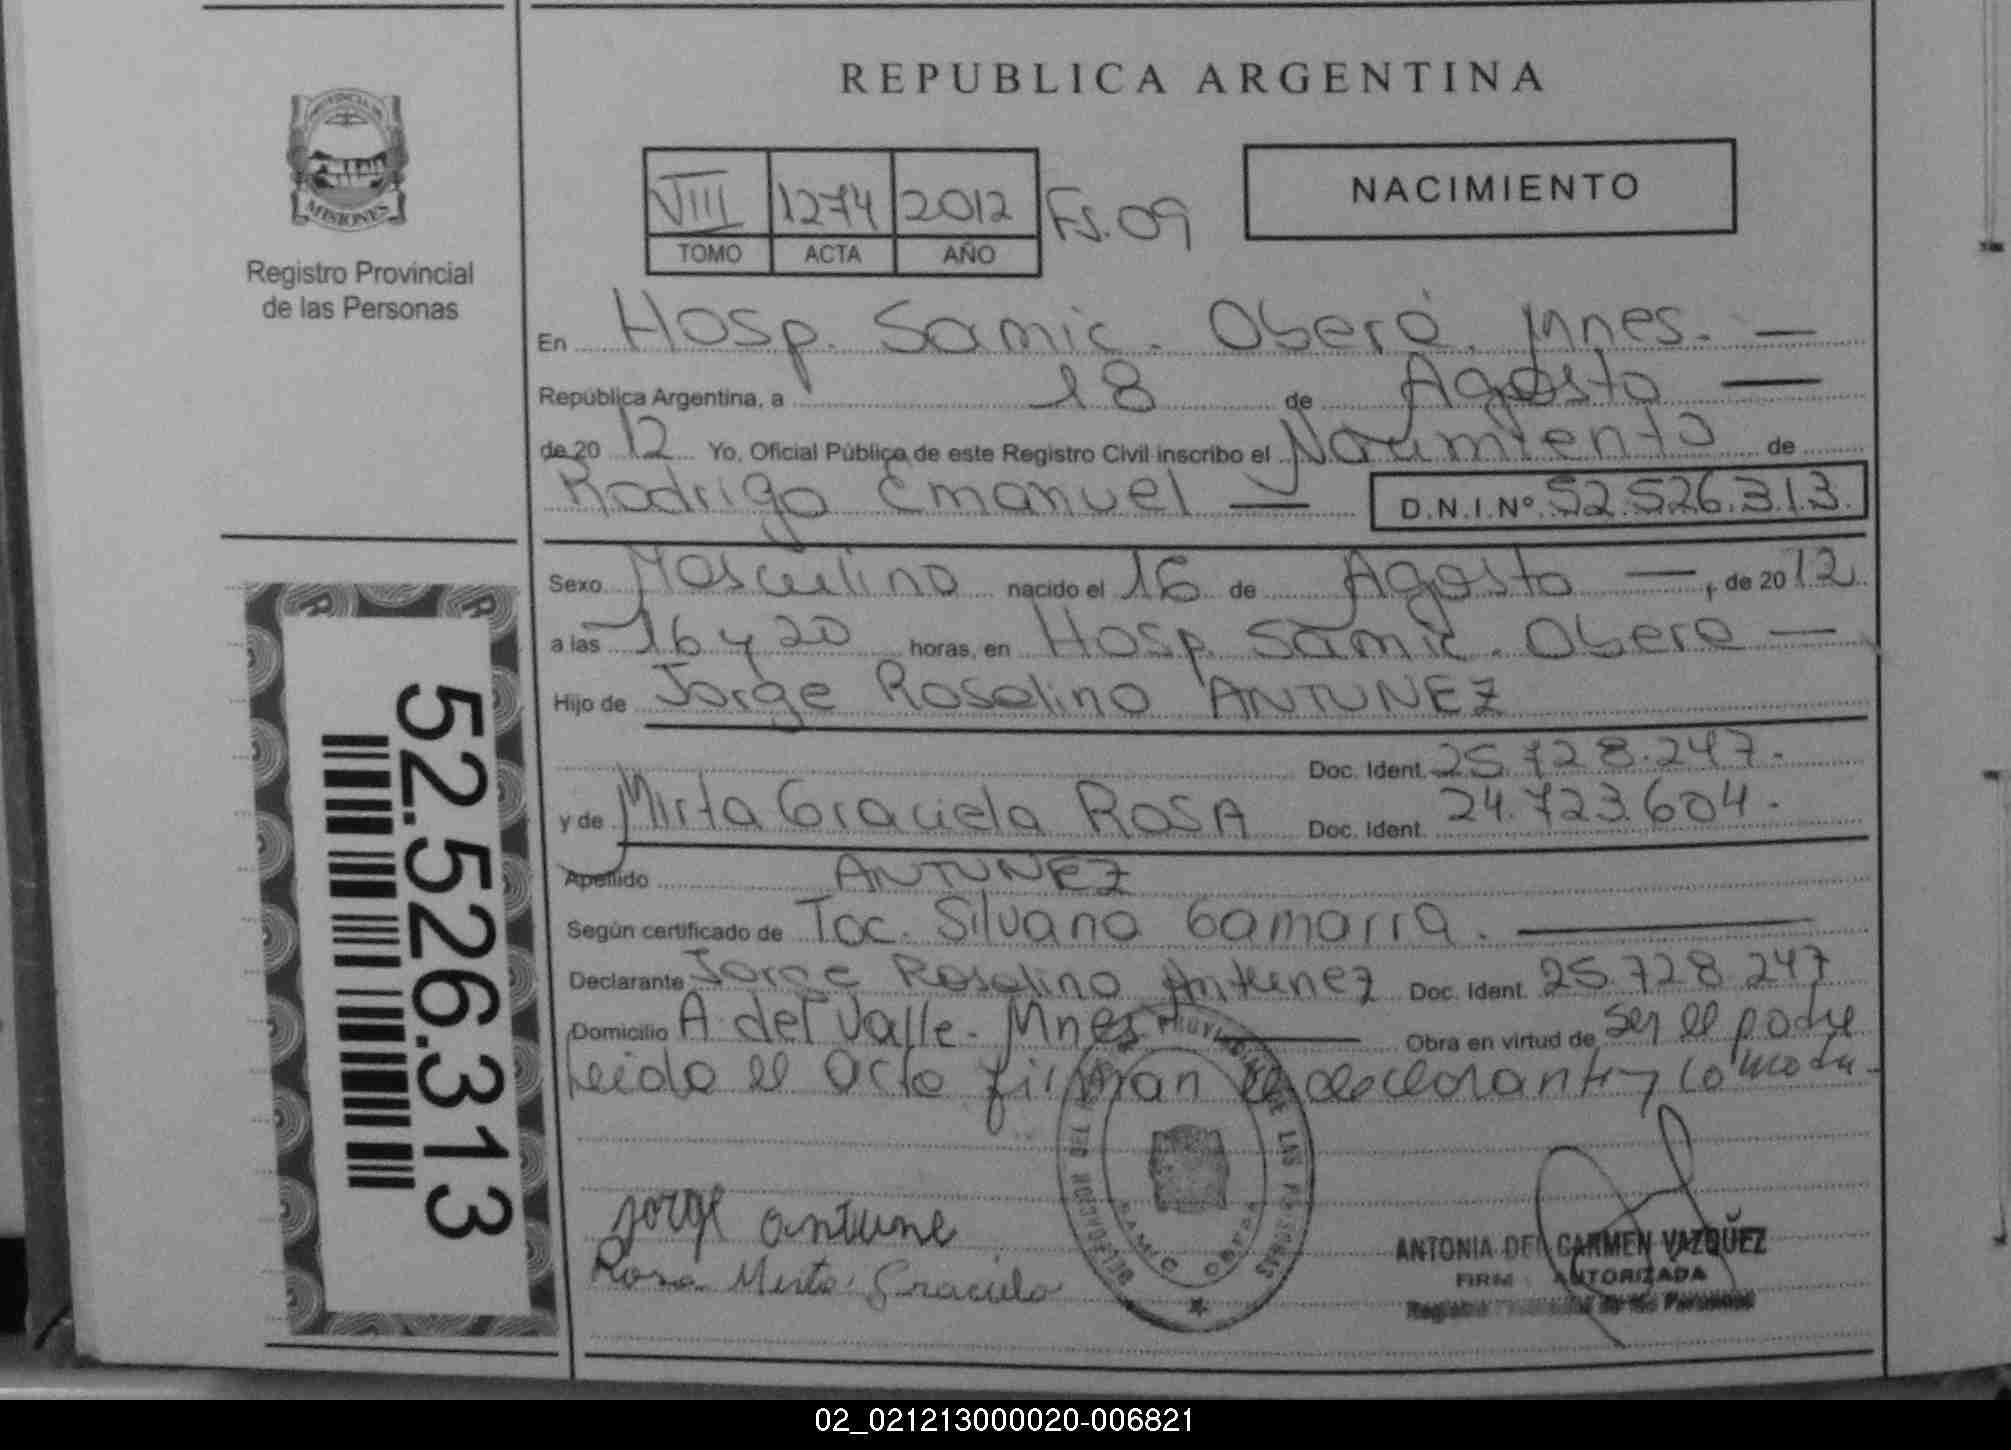 REPUBLICA ARGENTINA
PROVINCIA DE
MISIONES
Registro Provincial
de las Personas
VIII 1274 2012 Fs. 09
TOMO ACTA AÑO
NACIMIENTO
En Hosp. Samic. Oberá. Mnes. —
República Argentina, a 18 de Agosto —
de 20 12 Yo, Oficial Público de este Registro Civil inscribo el Nacimiento de
Rodrigo Emanuel — D.N.I.Nº 52.526.313.
Sexo Masculino nacido el 16 de Agosto —, de 20 12
a las 16 y 20 horas, en Hosp. Samic. Obera —
Hijo de Jorge Rosalino ANTUNEZ
Doc. Ident. 25.728.247.
y de Mirta Graciela ROSA Doc. Ident. 24.723.604.
Apellido ANTUNEZ
Según certificado de Toc. Silvana Gamarra. —
Declarante Jorge Rosalino Antunez Doc. Ident. 25.728.247
Domicilio A. del Valle - Mnes — Obra en virtud de ser el padre
Leida el Acta firman el declarante y
52.526.313
Jorge antune
Rosa Mirta Graciela
DELEGACION DEL PROVINCIAL DE LAS PERSONAS
SAMIC OBERA
ANTONIA DEL CARMEN VAZQUEZ
FIRMA AUTORIZADA
de las Personas
02_021213000020-006821